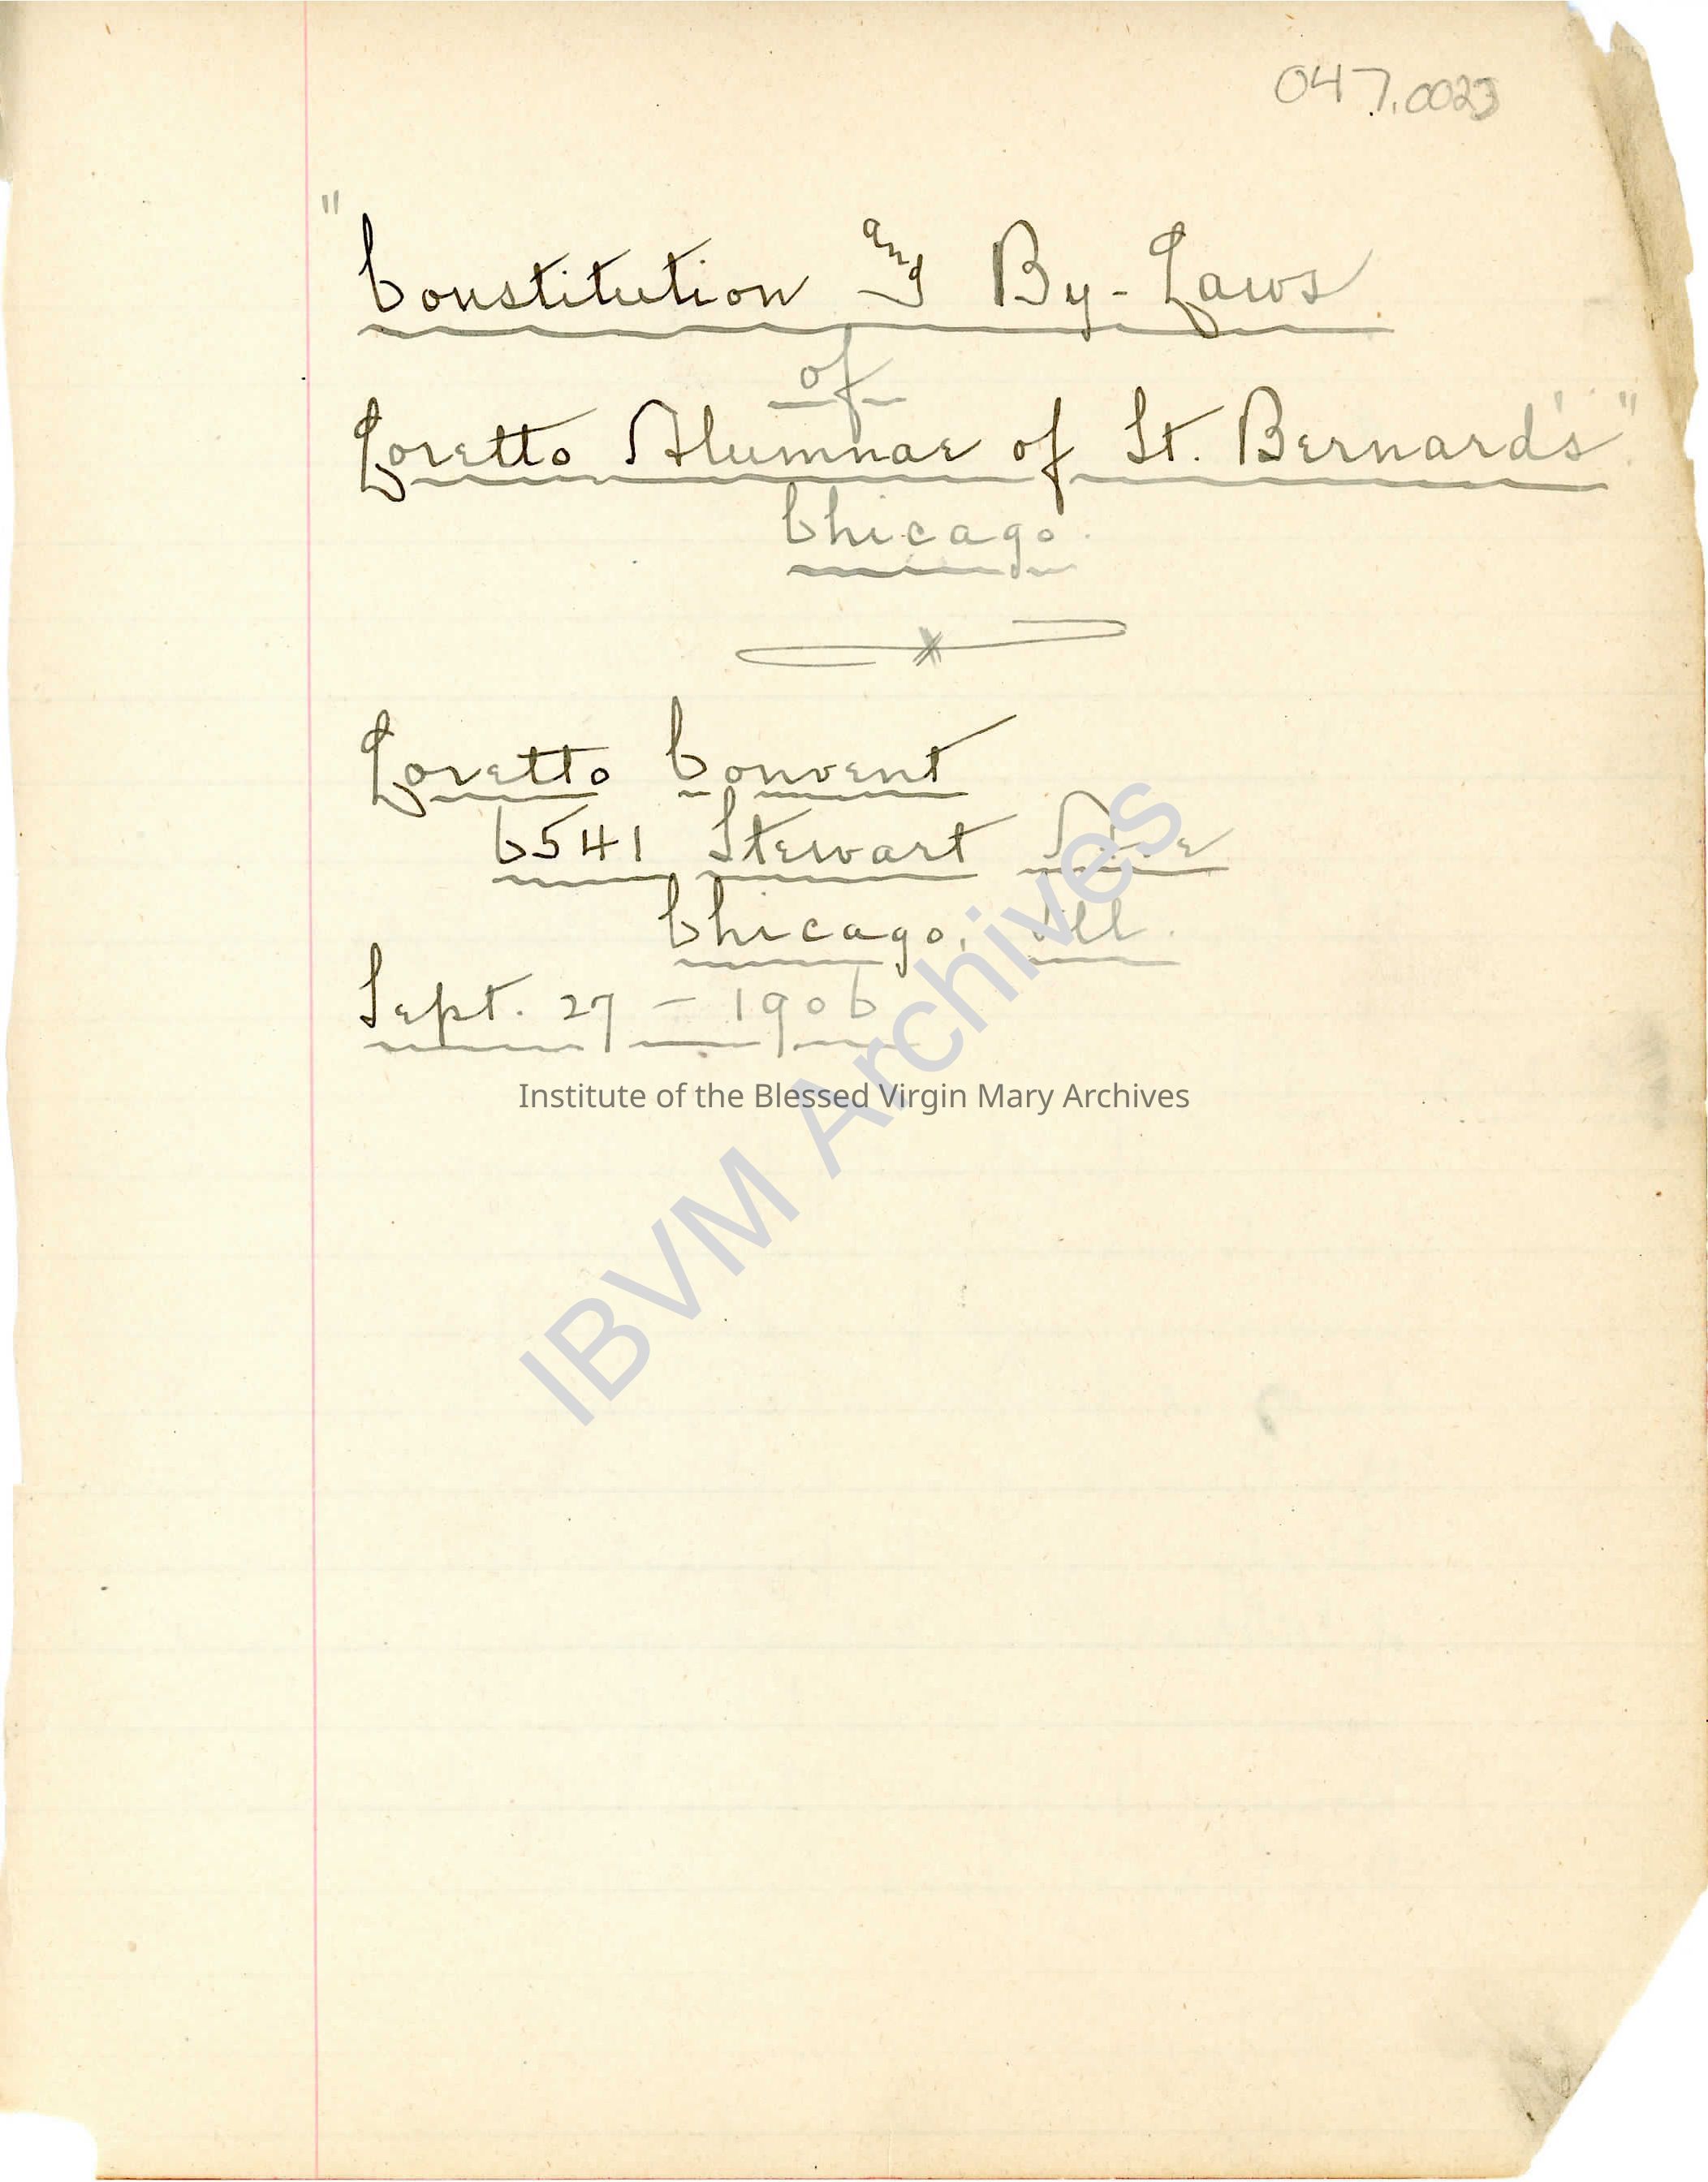 047.0023
"Constitution and By-Laws
of
Loretto Alumnae of St. Bernard's"
Chicago.
Loretto Convent
6541 Stewart Ave
Chicago, Ill.
Sept. 27 - 1906
Institute of the Blessed Virgin Mary Archives
IBVM Archives